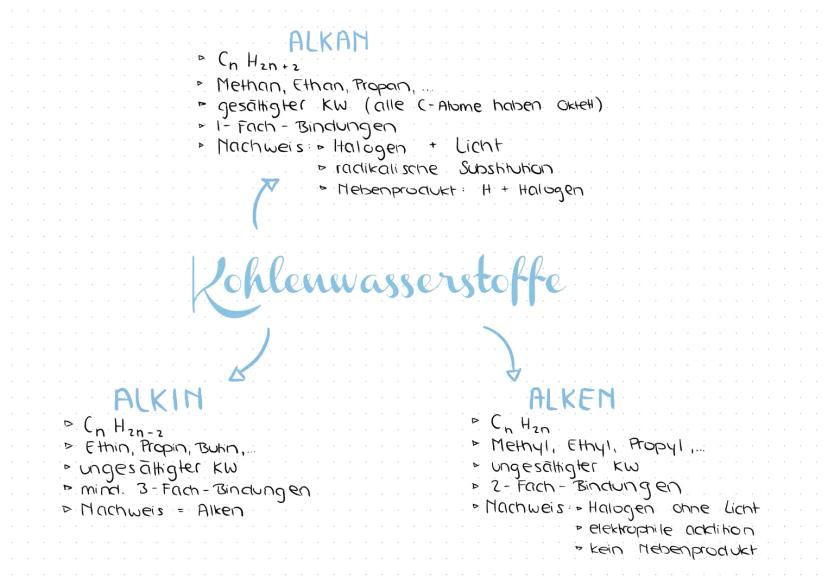 ALKAN
▹ Cn H2n+2
▹ Methan, Ethan, Propan, ...
▹ gesättigter KW (alle C-Atome haben Oktett)
▹ 1-Fach-Bindungen
▹ Nachweis: ▹ Halogen + Licht
▹ radikalische Substitution
▹ Nebenprodukt: H + Halogen
Kohlenwasserstoffe
ALKIN
▹ Cn H2n-2
▹ Ethin, Propin, Butin,...
▹ ungesättigter KW
▹ mind. 3-Fach-Bindungen
▹ Nachweis = Alken
ALKEN
▹ Cn H2n
▹ Methyl, Ethyl, Propyl,...
▹ ungesättigter KW
▹ 2-Fach-Bindungen
▹ Nachweis: ▹ Halogen ohne Licht
▹ elektrophile addition
▹ kein Nebenprodukt